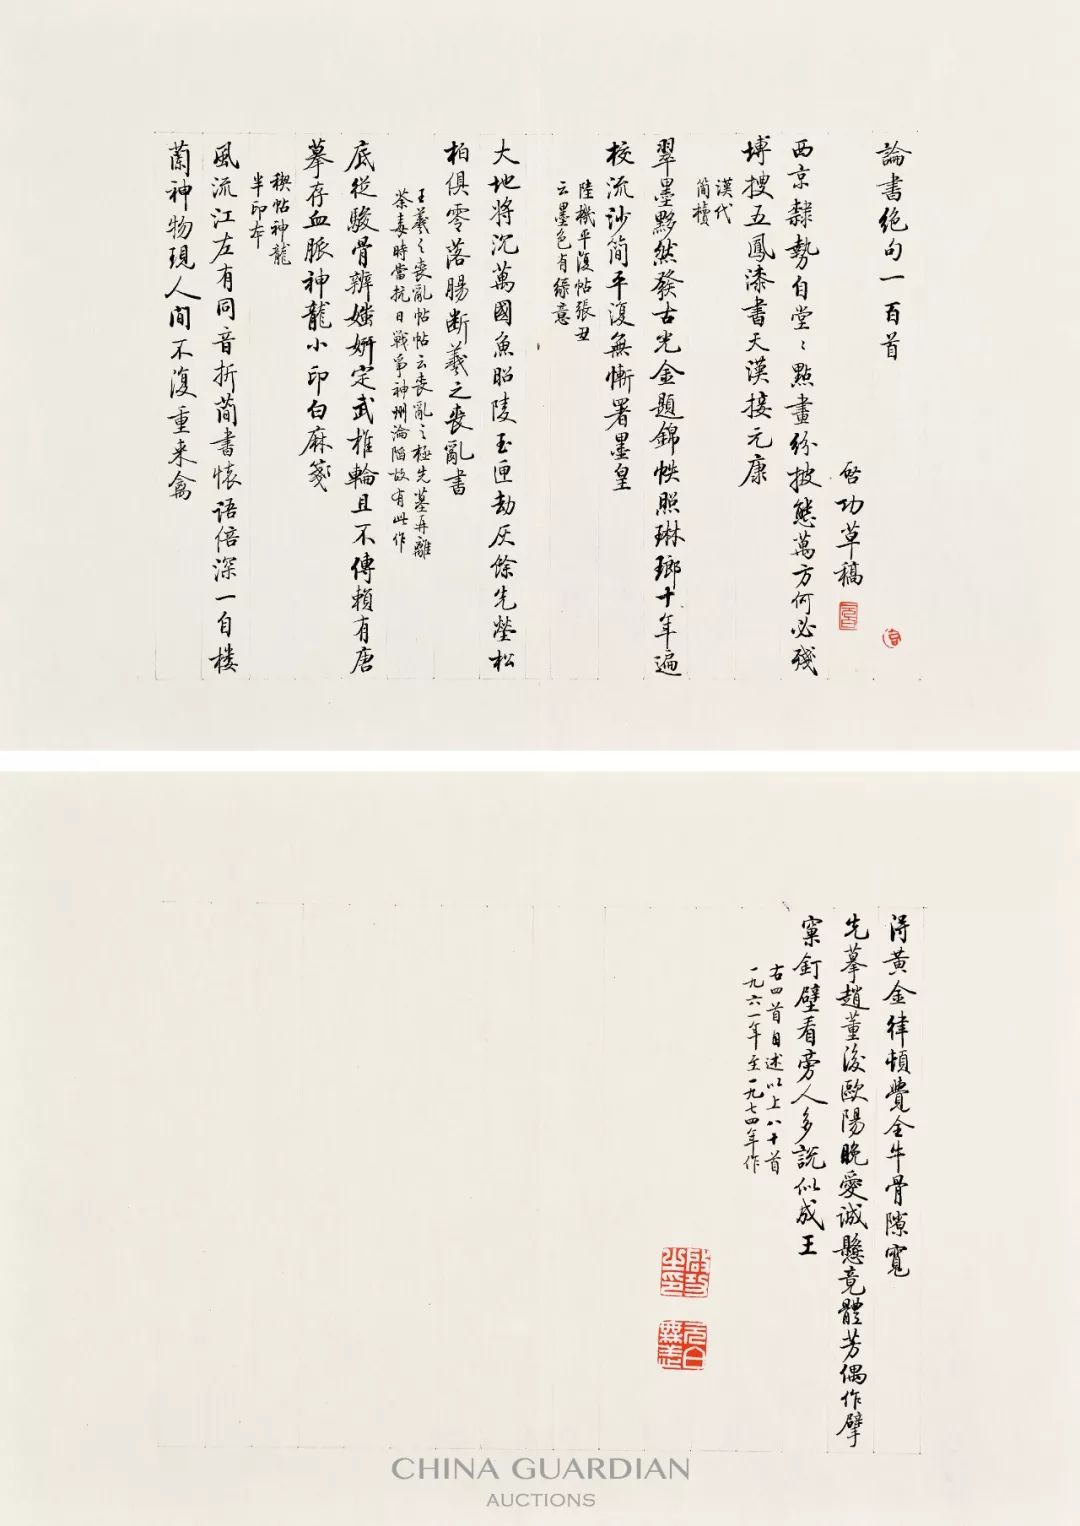 論書絕句一百首
啓功草稿
西京隸勢自堂〻點畫紛披態萬方何必殘
塼搜五鳳漆書天漢接元康
漢代
簡牘
翠墨黟然發古光金題錦帙照琳瑯十年遍
校流沙簡平復無慚署墨皇
陸機平復帖張丑
云墨色有綠意
大地將沉萬國魚昭陵玉匣劫灰餘先塋松
柏俱零落腸斷羲之喪亂書
王羲之喪亂帖帖云喪亂之極先墓再離
荼毒時當抗日戰爭神州淪陷故有此作
底從駿骨辨媸妍定武椎輪且不傳賴有唐
摹存血脈神龍小印白麻箋
禊帖神龍
半印本
風流江左有同音折簡書懷語倍深一自樓
蘭神物現人間不復重來禽
得黃金律頓覺全牛骨隙寬
先摹趙董後歐陽晚愛誠懸竟體芳偶作擘
窠釘壁看旁人多說似成王
右四首自述以上八十首
一九六一年至一九七四年作
啟功
之印
元白
無恙
CHINA GUARDIAN
AUCTIONS